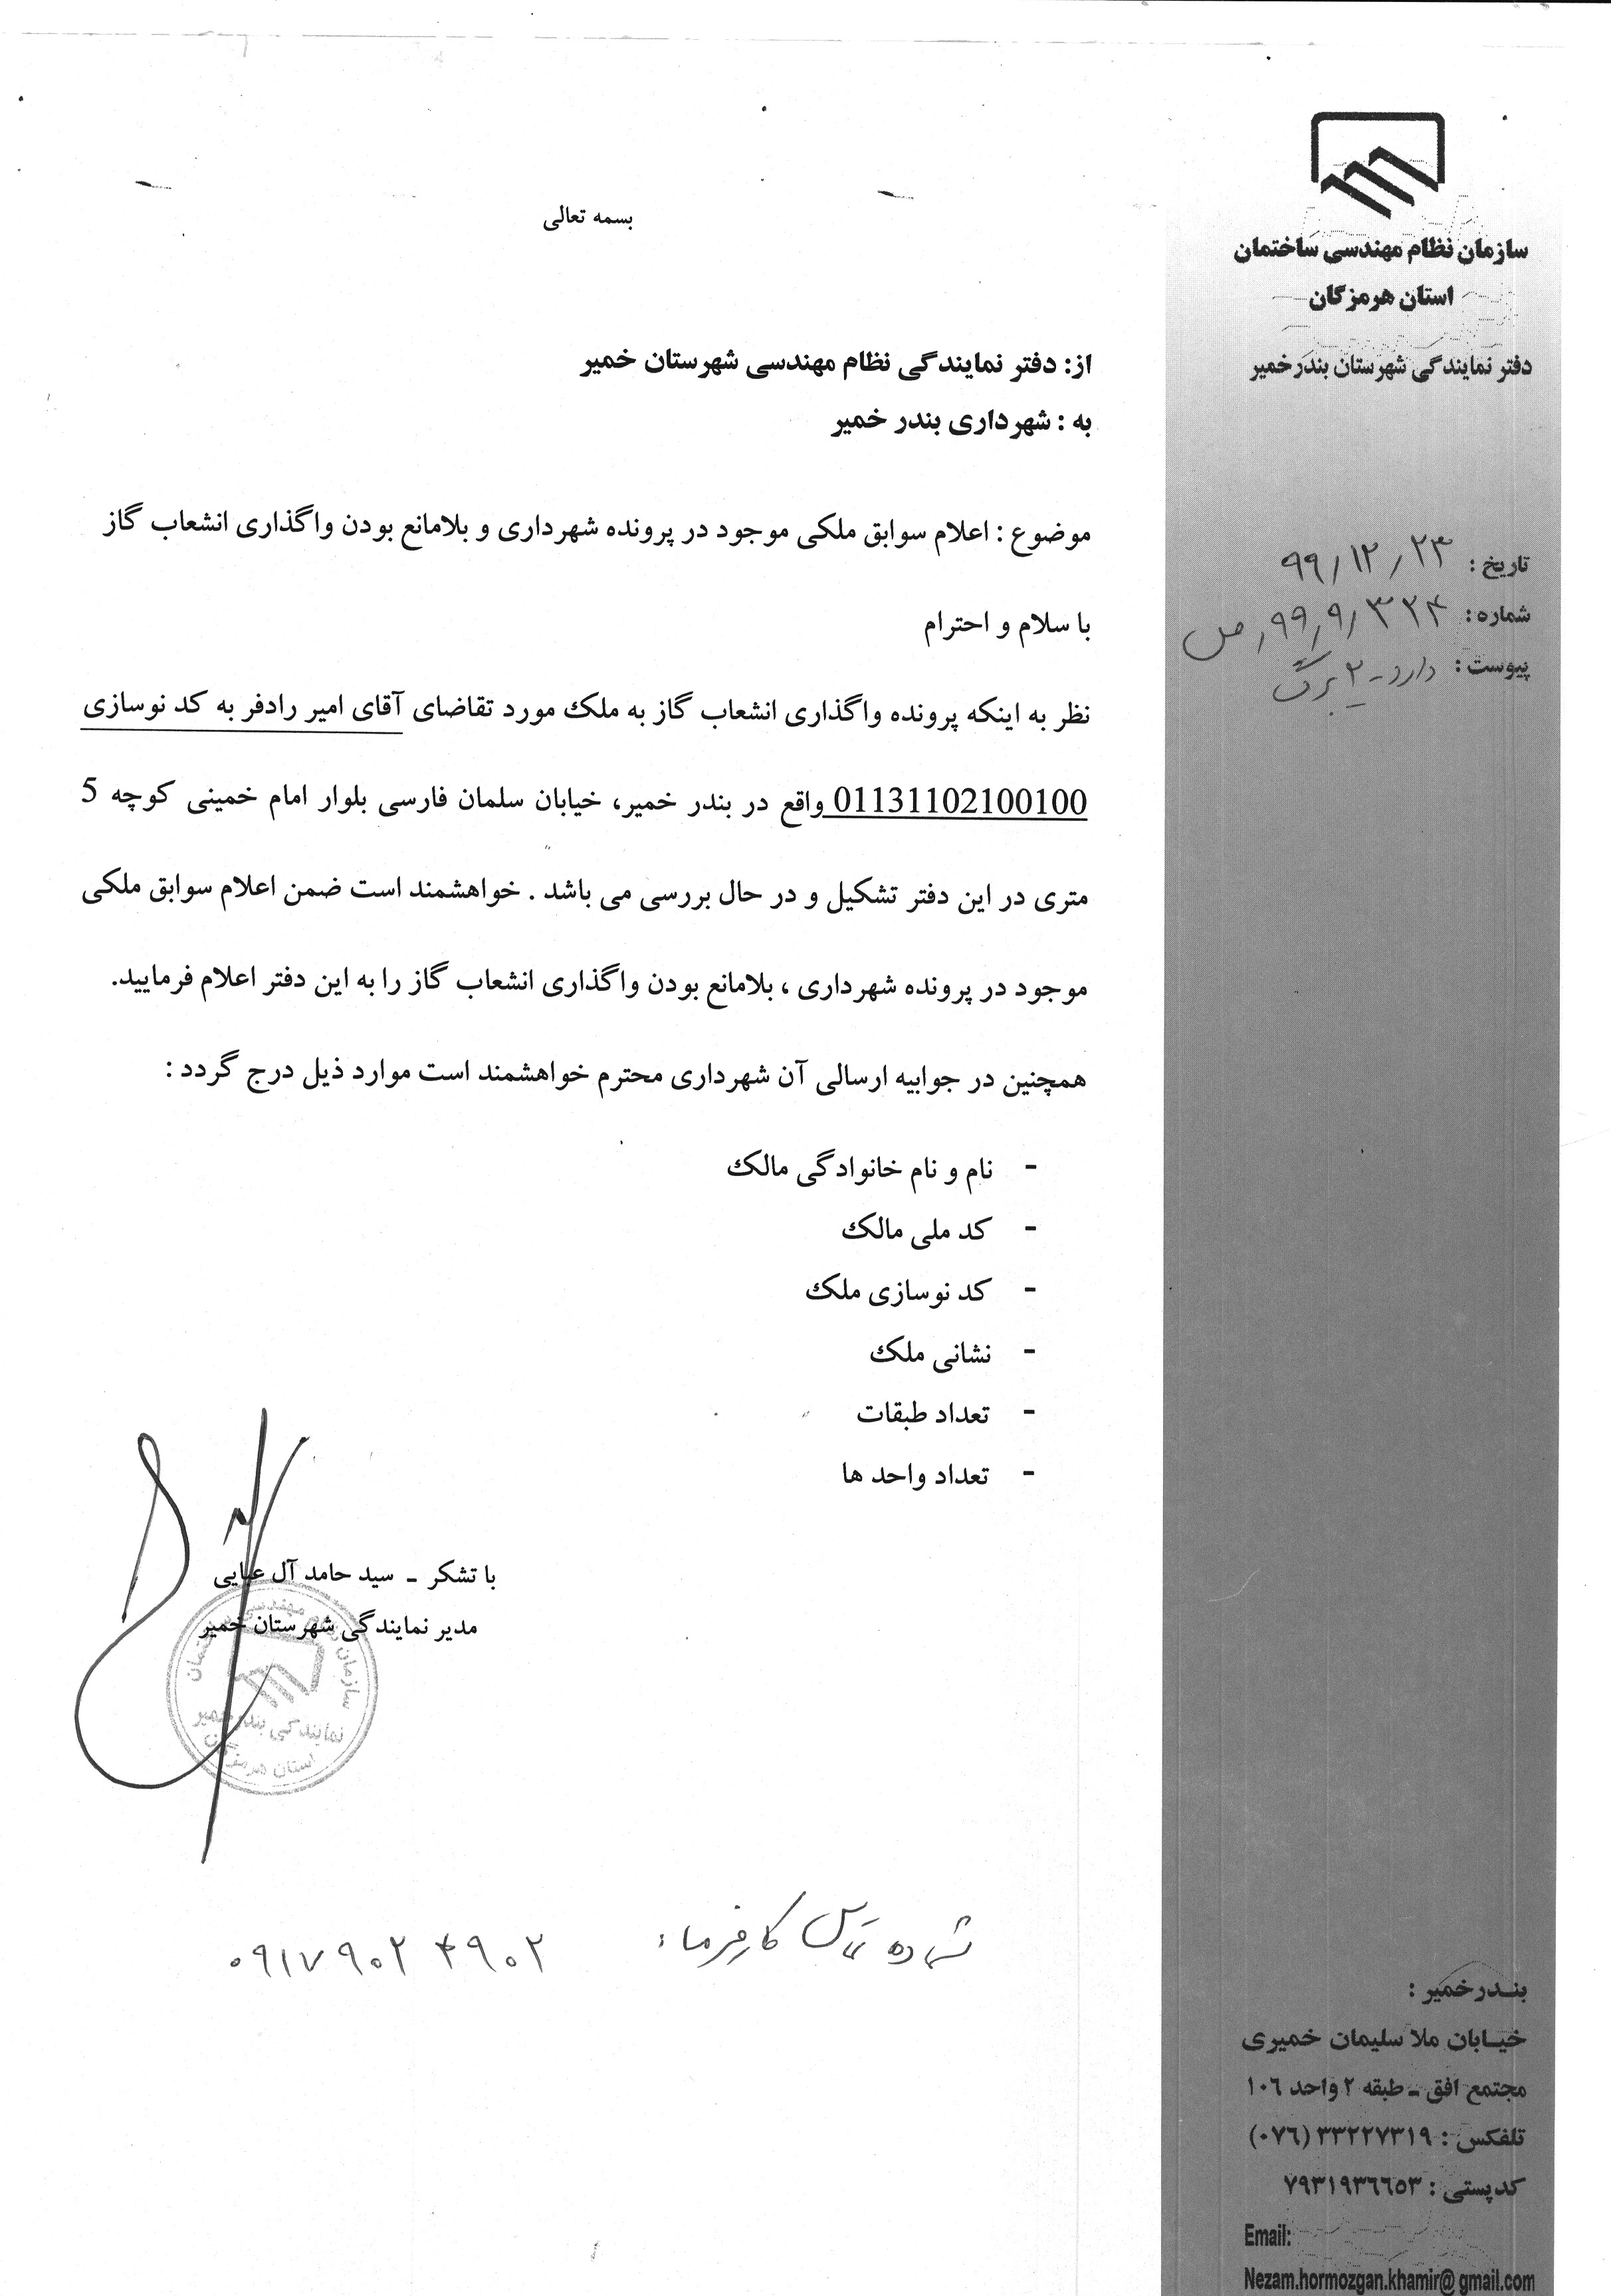 سازمان نظام مهندسی ساختمان
استان هرمزگان
دفتر نمایندگی شهرستان بندرخمیر
تاریخ : ۹۹/۱۲/۲۳
شماره : ۹۹٫۹/۳۲۴٫ص
پیوست : دارد - ۲ برگ
بسمه تعالی
از: دفتر نمایندگی نظام مهندسی شهرستان خمیر
به : شهرداری بندر خمیر
موضوع : اعلام سوابق ملکی موجود در پرونده شهرداری و بلامانع بودن واگذاری انشعاب گاز
با سلام و احترام
نظر به اینکه پرونده واگذاری انشعاب گاز به ملک مورد تقاضای آقای امیر رادفر به کد نوسازی
01131102100100 واقع در بندر خمیر، خیابان سلمان فارسی بلوار امام خمینی کوچه 5
متری در این دفتر تشکیل و در حال بررسی می باشد . خواهشمند است ضمن اعلام سوابق ملکی
موجود در پرونده شهرداری ، بلامانع بودن واگذاری انشعاب گاز را به این دفتر اعلام فرمایید.
همچنین در جوابیه ارسالی آن شهرداری محترم خواهشمند است موارد ذیل درج گردد :
- نام و نام خانوادگی مالک
- کد ملی مالک
- کد نوسازی ملک
- نشانی ملک
- تعداد طبقات
- تعداد واحد ها
با تشکر - سید حامد آل عبایی
مدیر نمایندگی شهرستان خمیر
سازمان نظام مهندسی ساختمان
نمایندگی بندرخمیر
استان هرمزگان
شماره تماس کارفرما: ۰۹۱۷۹۰۲۴۹۰۲
بندرخمیر :
خیابان ملا سلیمان خمیری
مجتمع افق - طبقه ۲ واحد ۱۰۶
تلفکس : ۳۳۲۲۷۳۱۹ (۰۷۶)
کدپستی : ۷۹۳۱۹۳۶۶۵۳
Email:
Nezam.hormozgan.khamir@gmail.com